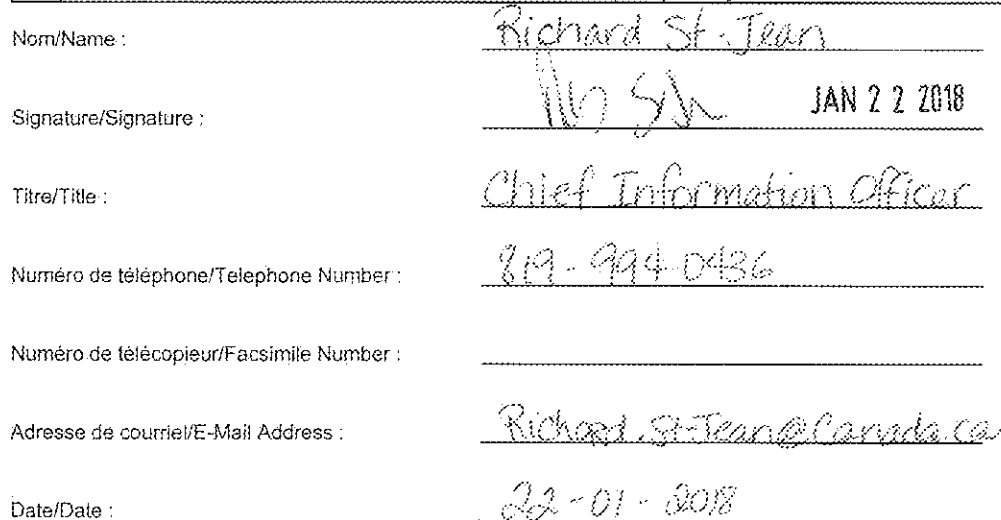 Nom/Name : Richard St-Jean
Signature/Signature : JAN 22 2018
Titre/Title : Chief Information Officer
Numéro de téléphone/Telephone Number : 819-994-0436
Numéro de télécopieur/Facsimile Number :
Adresse de courriel/E-Mail Address : Richard.St-Jean@Canada.ca
Date/Date : 22-01-2018